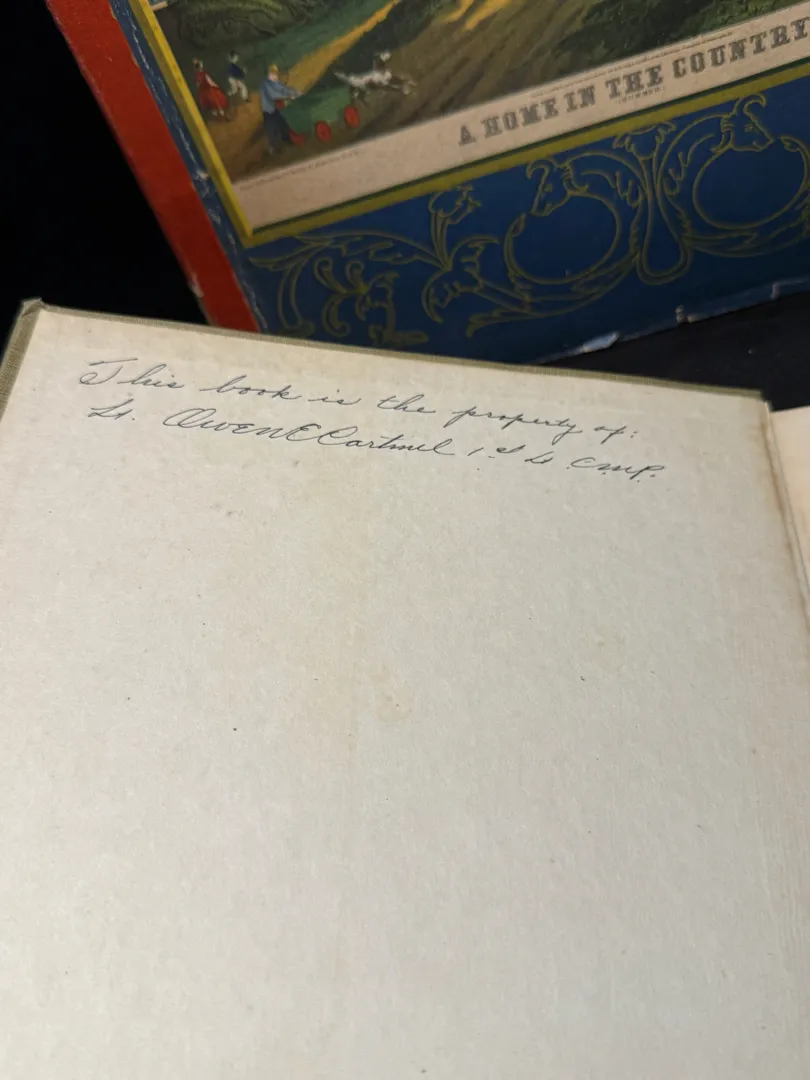 A HOME IN THE COUNTRY
This book is the property of:
Lt. Owen E Cartmel 1st Lt. CMP.